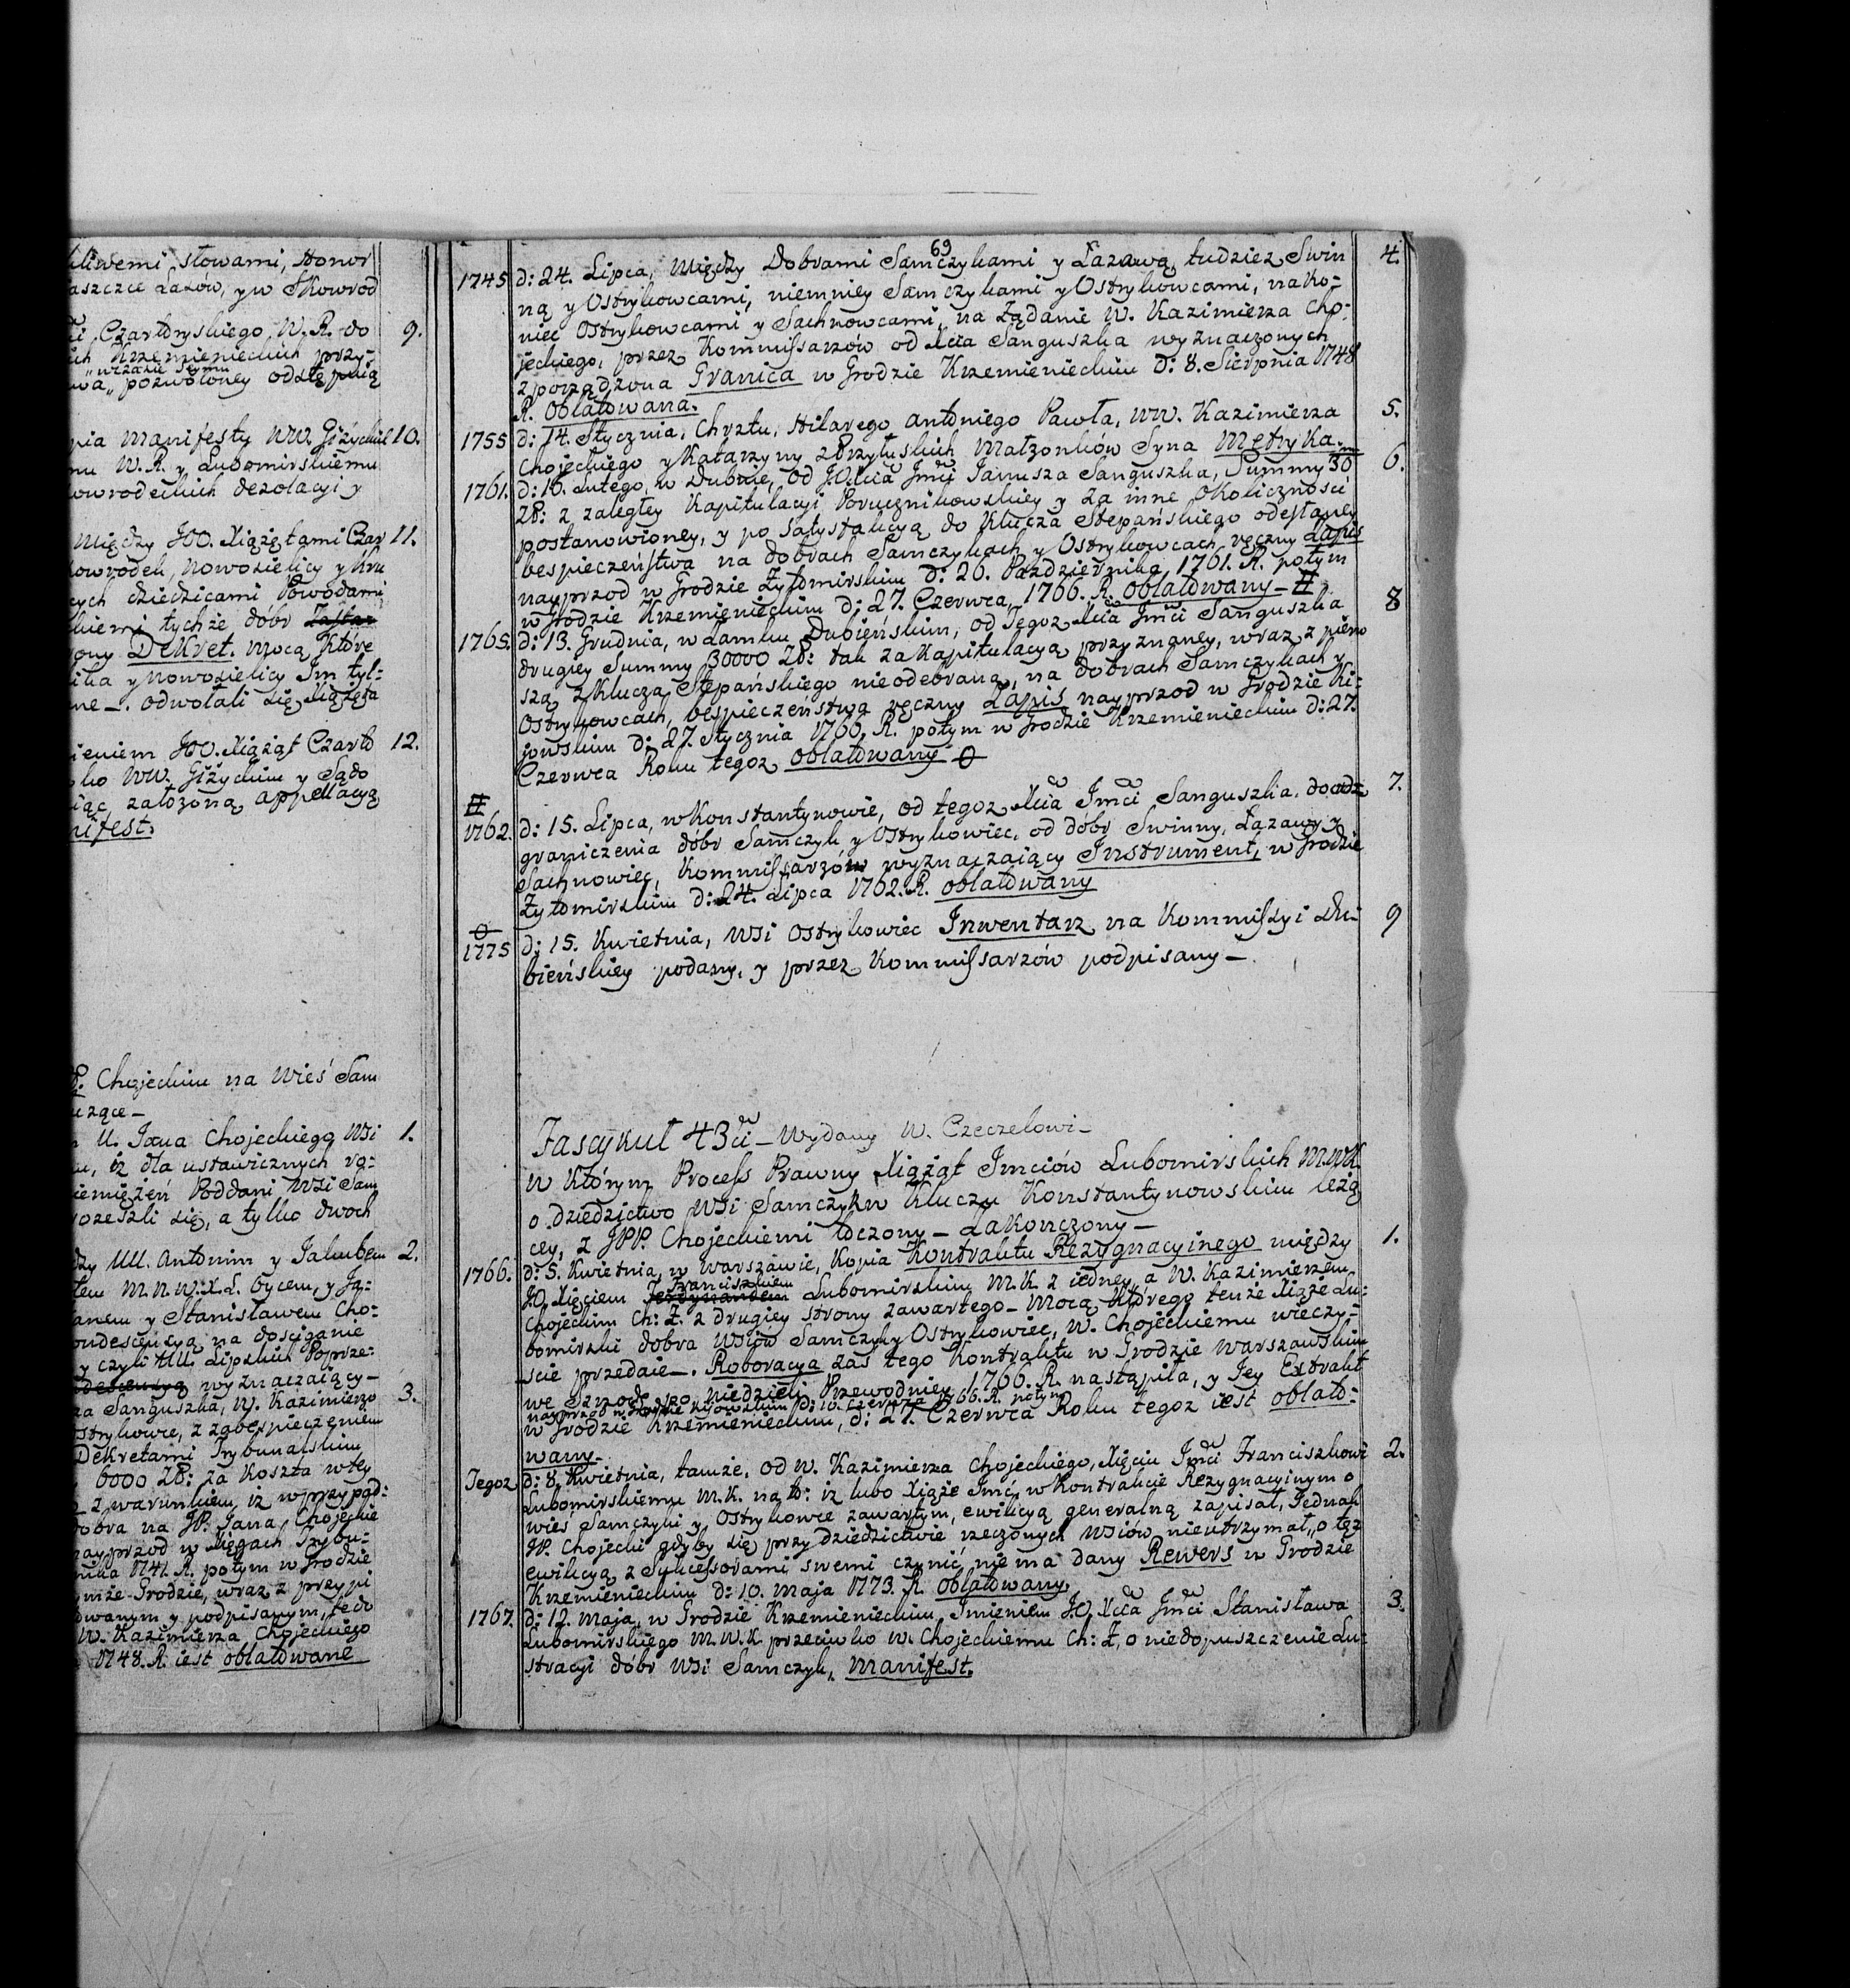 liwemi słowami, Honor
aszcze Lasów, y w Skowrod
Czartoryskiego W. R. do 9.
ich Krzemienieckich przy-
wa „ pozwoloney odstępnią
nia Manifesty WW. Giżyckie 10.
mu W. R. y Lubomirskiemu
owrodeckich dezolacyi y
Między JOO. Xiążętami Czar 11.
owrodek, Nowosielicy y Kru
cych dziedzicami Powodami
kiemi tychże dóbr
ony Dekret. mocą Które
ika y Nowosielicy Im tyl-
ne —. odwołali się Xiążęta
ieniem JOO. Xiążąt Czarto 12.
ko WW. Giżyckim y Sądo
iąc założoną appellacyą
nifest.
P. Chojeckim na Wieś Sam
uzące —
U. Jana Chojeckiego Wsi 1.
u, iż dla ustawicznych ro:
iemiężeń Poddani Wsi Sam
rozeszli się, a tylko dwoch
dzy UU. Antonim y Jakubem 2.
tem M. N. W. X. L. bycem, y Ja-
anem y Stanisławem Cho-
ondescensyą na dościganie
y czyli UU. Lipskich Poprze-
wyznaczaiący —
za Sanguszka, W. Kazimierzo 3.
Ostrykowie, z zabespieczeniem
Dekretami Trybunalskim
6000 Zł: za Koszta w tey
z warunkiem, iż w przypad:
dobra na JP. Jana Chojeckie
nayprzod w Xięgach Trybu-
nika 1741. R. potym w Grodzie
ymże Grodzie, wraz z przypi
owanym y podpisanym, fedo
W. Kazimierza Chojeckiego
1748. R. iest oblatowane
69
1745 d: 24. Lipca, Między Dobrami Samczykami y Łazawą, tudzież Swin 4.
ną y Ostrykowcami, niemniey Samczykami y Ostrykowcami, na Ko-
niec Ostrykowcami y Sachnowcami, na Żądanie W. Kazimierza Cho-
jeckiego, przez Kommissarzów od Xcia Sanguszka wyznaczonych
zporządzona Granica w Grodzie Krzemienieckim d: 8. Sierpnia 1748
R. Oblatowana.
1755 d: 14. Stycznia, Chrztu, Hilarego Antoniego Pawła, WW. Kazimierza 5.
Chojeckiego y Katarzyny z Przyłuskich Małżonków Syna Metryka.
1761. d: 10. Lutego, w Dubnie, od JO. Xcia Jmci Janusza Sanguszka, Summy 30 6.
Zł: z zaległey Kapitulacyi Porucznikowskiey y za inne okoliczności
postanowioney, y po Satysfakcyą do Klucza Stepańskiego odesłaney
bespieczeństwa na dobrach Samczykach y Ostrykowcach ręczny Zapis
nayprzod w Grodzie Żytomirskim d: 26. Października 1761. R. potym
w Grodzie Krzemienieckim d: 27. Czerwca, 1766. R. oblatowany — #
1765. d: 13. Grudnia, w Zamku Dubieńskim, od Tegoż Xcia Jmci Sanguszka 8
drugiey Summy 30000 Zł: tak za Kapitulacyą przyznaney, wraz z pierw
szą z Klucza Stepańskiego nieodebraną, na dobrach Samczykach y
Ostrykowcach, bespieczeństwa ręczny Zapis nayprzod w Grodzie Ki-
iowskim d: 27. Stycznia 1766. R. potym w Grodzie Krzemienieckim d: 27.
Czerwca Roku tegoż oblatowany —
#
1762. d: 15. Lipca, w Konstantynowie, od tegoż Xcia Jmci Sanguszka. do 7.
graniczenia dóbr Samczyk y Ostrykowiec, od dóbr Swinny, Łazawy y
Sachnowiec, Kommissarzów wyznaczaiący Instrument, w Grodzie
Żytomirskim d: 24. Lipca 1762. R. oblatowany
1775 d: 15. Kwietnia, Wsi Ostrykowiec Inwentarz na Kommissyi Du- 9
bieńskiey podany, y przez Kommissarzów podpisany —.
Fascykuł 43ci — Wydany W. Czeczelowi —
w Którym Process Prawny Xiążąt Jmciów Lubomirskich M. W. K.
o dziedzictwo Wsi Samczyk w Kluczu Konstantynowskim leżą
cey, z JPP. Chojeckiemi toczony — Zakończony —
1766. d: 5. Kwietnia, w Warszawie, Kopia Kontraktu Rezygnacyinego między 1.
J. O. Xięciem Ferdynandem Franciszkiem Lubomirskim M. K. z iedney, a W. Kazimierzem
Chojeckim Ch: Ż. z drugiey strony zawartego — Mocą Którego tenże Xiąże Lu-
bomirski dobra Wsiów Samczyk y Ostrykowiec, W. Chojeckiemu wieczy-
ście przedaie —. Roboracya zaś tego Kontraktu w Grodzie Warszawskim
we Szrodę po Niedzieli Przewodniey 1766. R. nastąpiła, y Jey Extrakt
nayprzod w Grodzie Kijowskim d: 10. Czerwca 1766. R. potym
w Grodzie Krzemienieckim, d: 27. Czerwca Roku tegoż iest oblato-
wany —
Tegoż d: 8. Kwietnia, tamże, od W. Kazimierza Chojeckiego, Xięciu Jmci Franciszkowi 2.
Lubomirskiemu M. K. na to: iż lubo Xiąże Jmć w Kontrakcie Rezygnacyinym o
wieś Samczyki y Ostrykowce zawartym, ewikcyą generalną zapisał, Jednak
JP. Chojecki gdyby się przy dziedzictwie rzeczonych Wsiów nieutrzymał, o tęż
ewikcyą z Sukcessorami swemi czynić nie ma dany Rewers w Grodzie
Krzemienieckim d: 10. Maja 1773. R. oblatowany.
1767. d: 12. Maja, w Grodzie Krzemienieckim, Jmieniem J. O. Xcia Jmci Stanisława 3.
Lubomirskiego M. W. K. przeciwko W. Chojeckiemu Ch: Ż, o niedopuszczenie Lu-
stracyi dóbr Wsi Samczyk, Manifest.